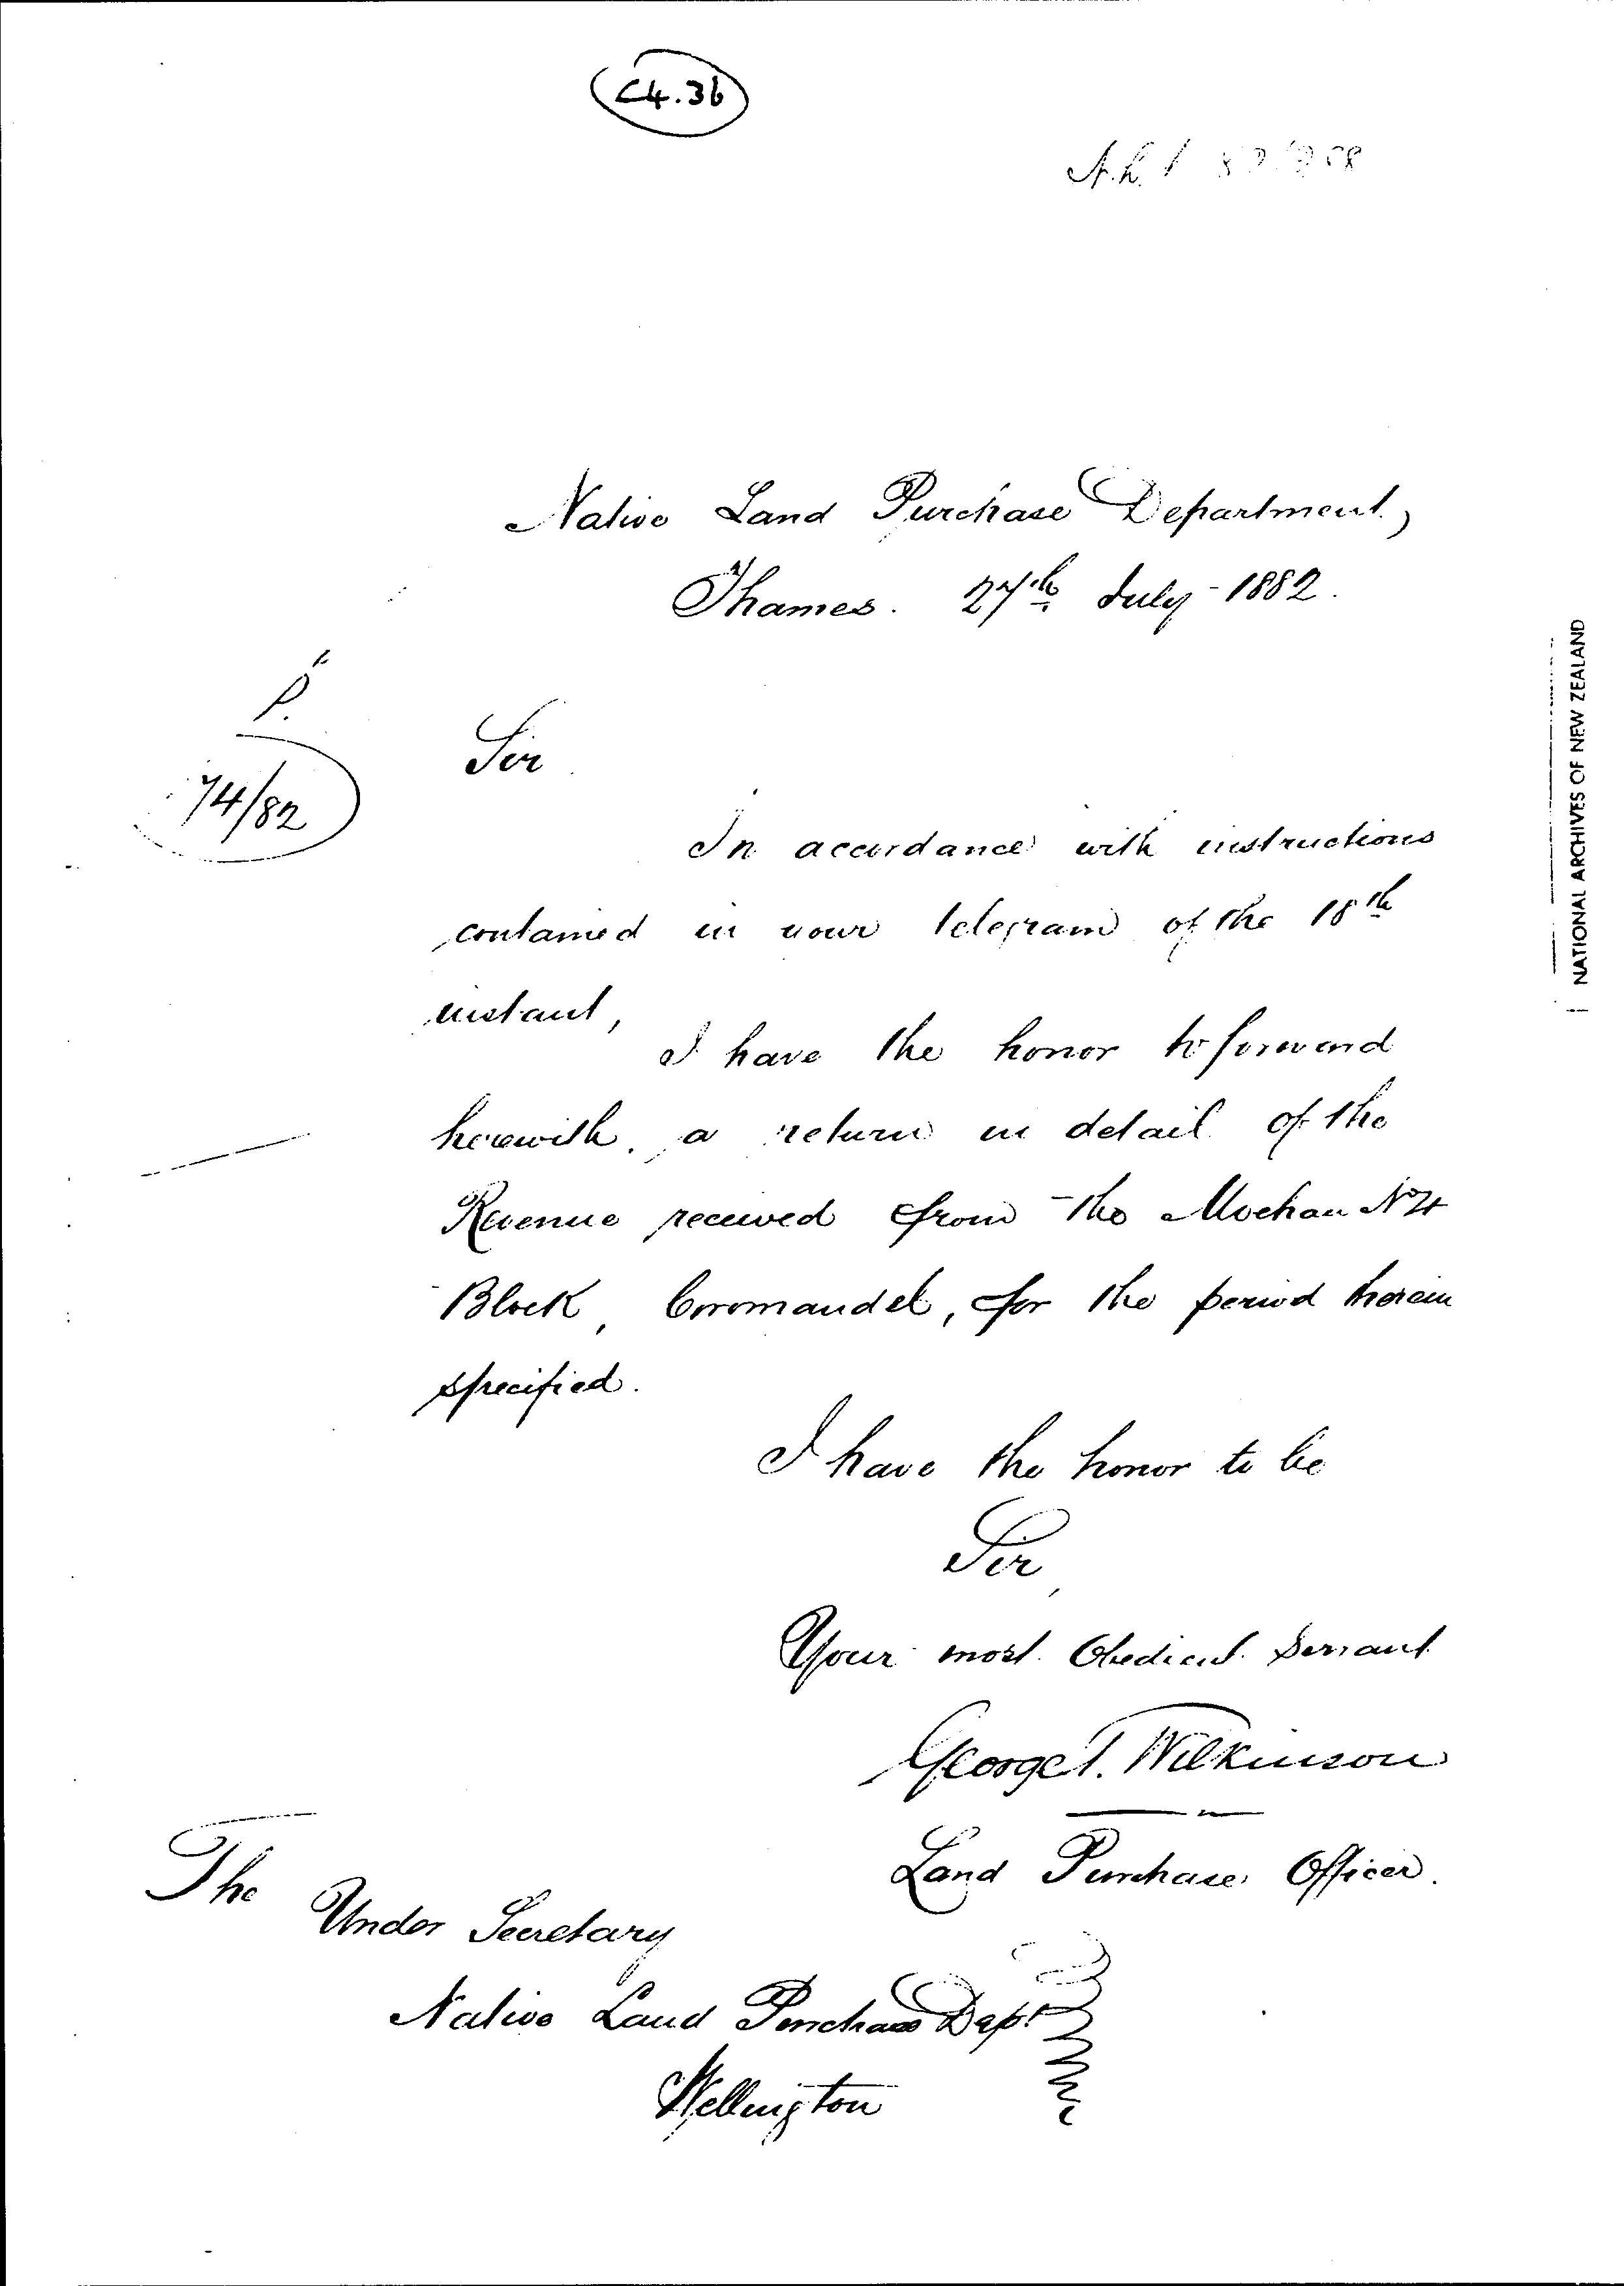 C4.36
Native Land Purchase Department,
Thames. 27th July - 1882.
P.
74/82
Sir
In accordance with instructions
contained in your telegram of the 18th
instant,
I have the honor to forward
herewith, a return in detail of the
Revenue received from the Moehau No 4
Block, Coromandel, for the period therein
specified.
I have the honor to be
Sir,
Your most Obedient Servant
George T. Wilkinson
Land Purchase Officer.
The
Under Secretary
Native Land Purchase Dept
Wellington
NATIONAL ARCHIVES OF NEW ZEALAND